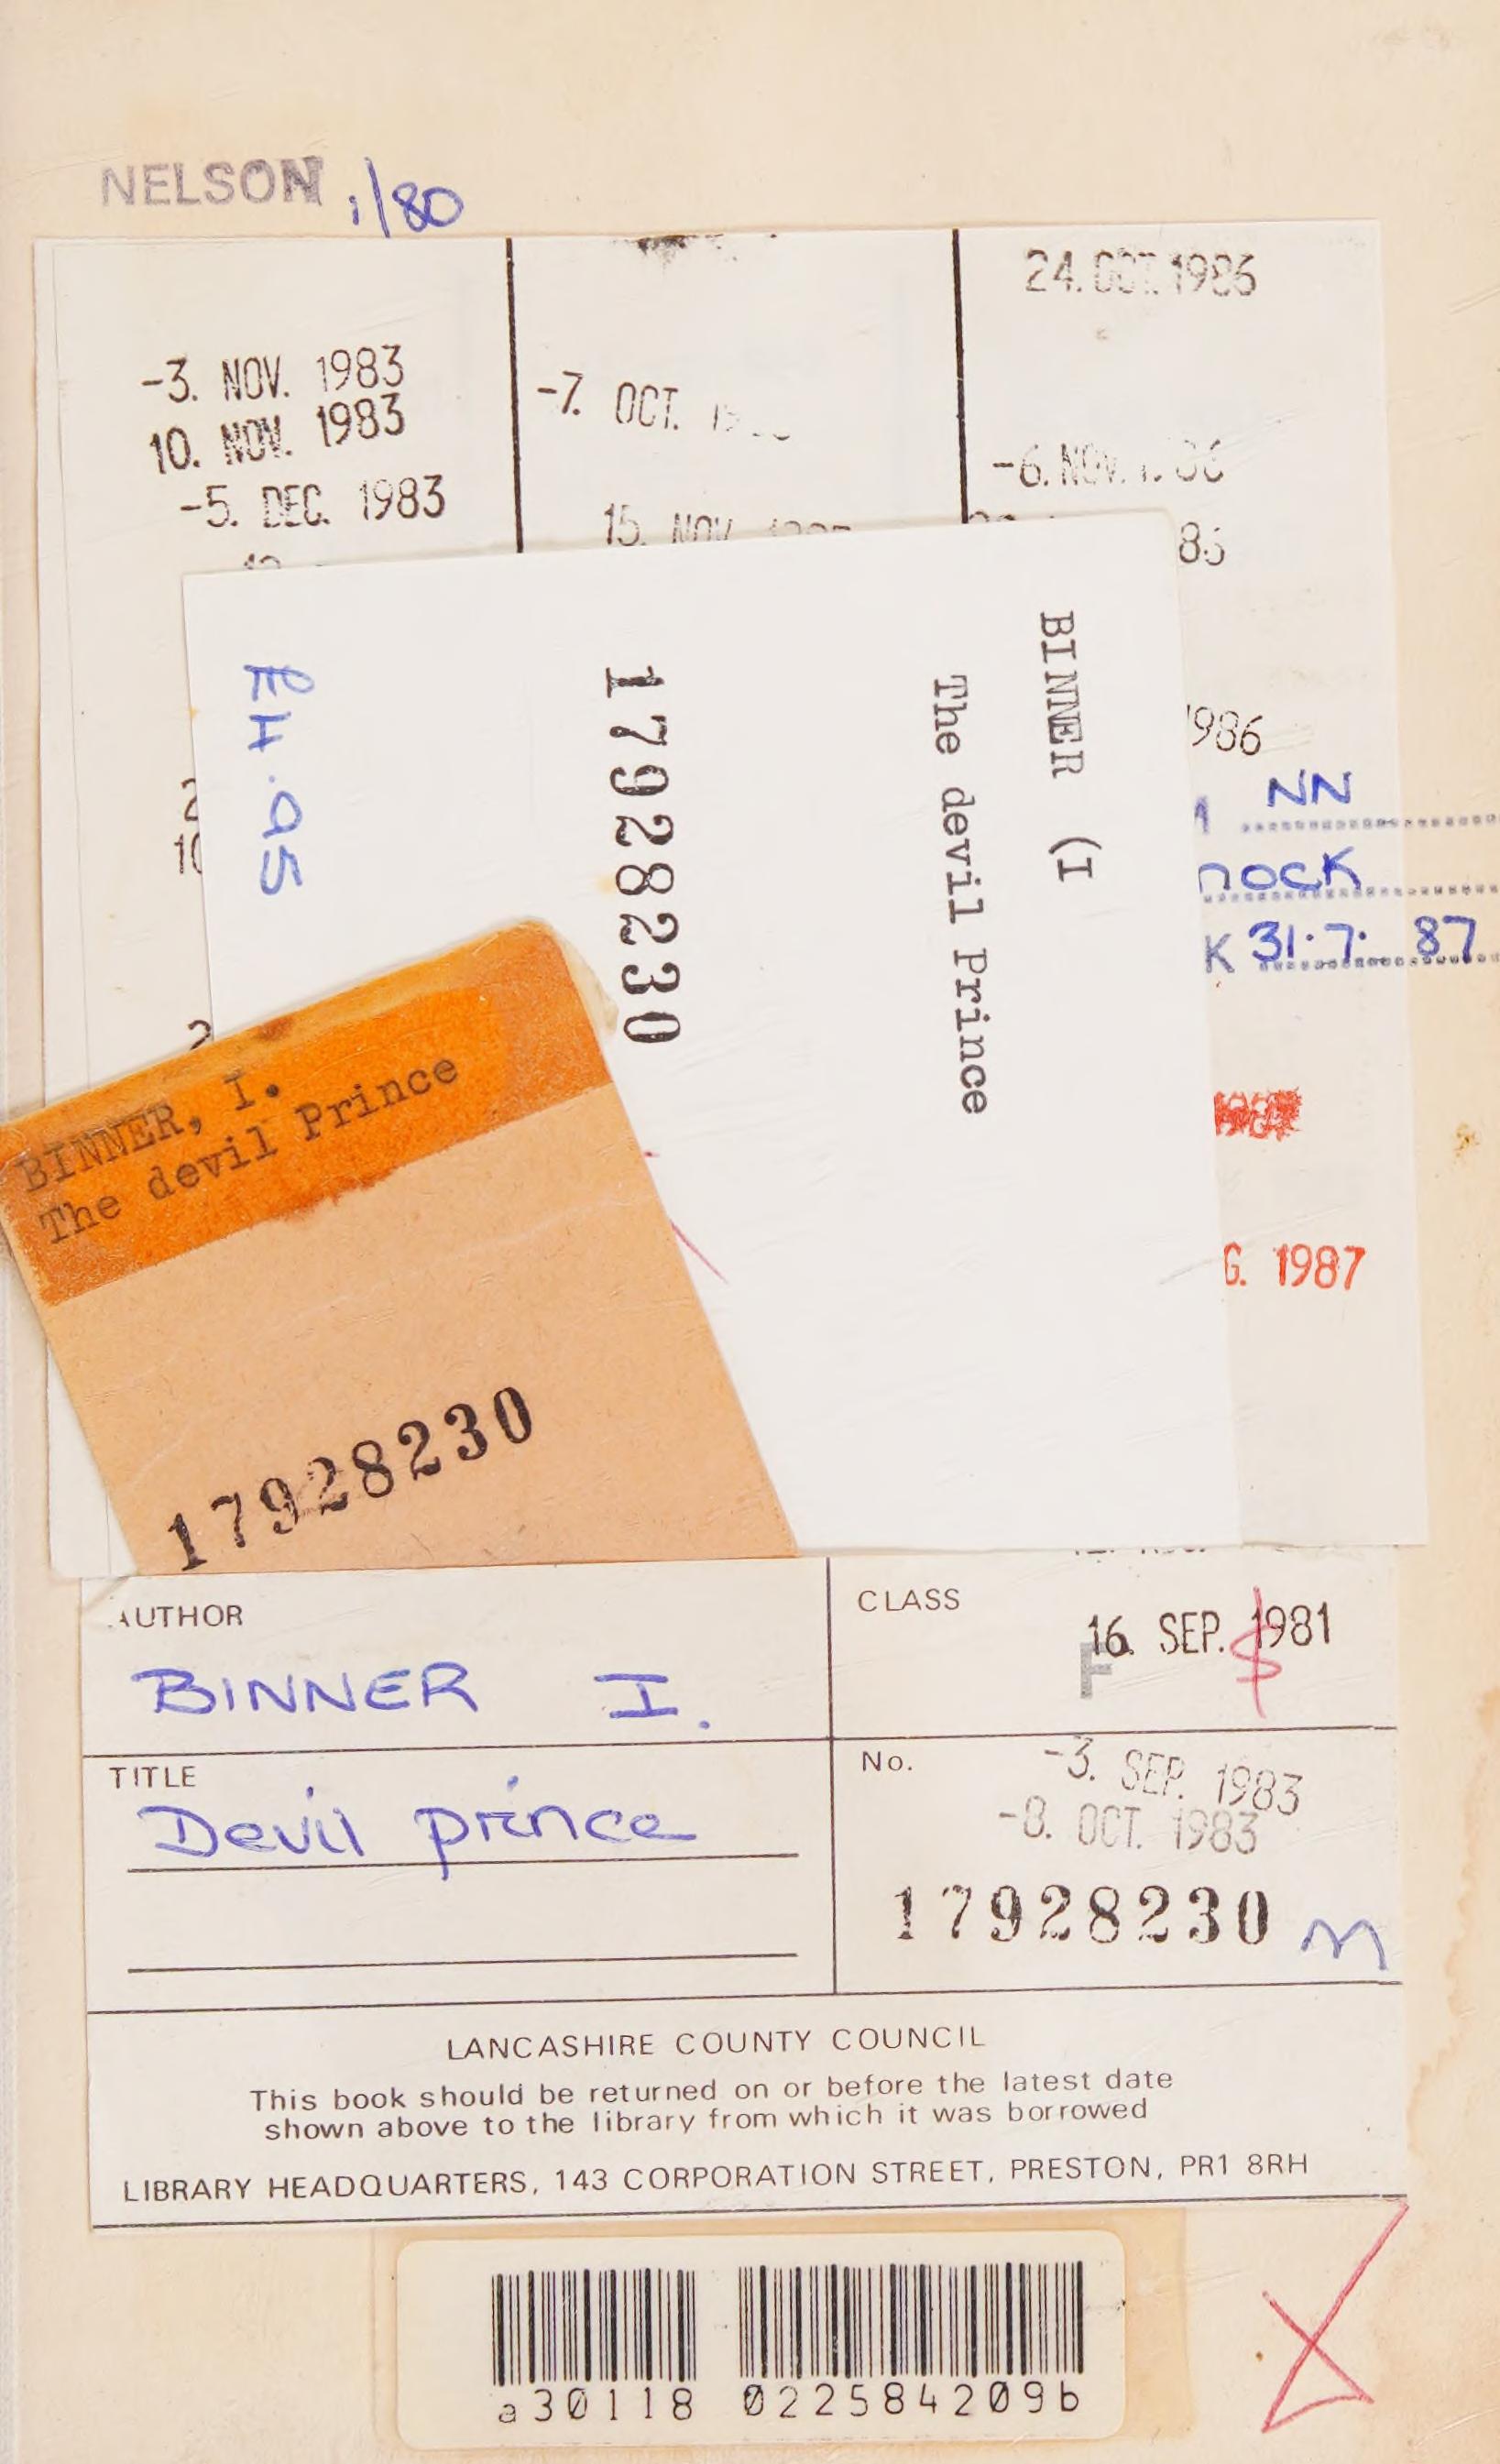 NELSON 1/80
-3. NOV. 1983
10. NOV. 1983
-5. DEC. 1983
-7. OCT.
15. NOV.
24. OCT. 1986
-6. NOV.
1986
NN
nock
K 31.7. 87
G. 1987
BINNER (I
The devil Prince
17928230
RH.95
BINNER, I.
The devil Prince
17928230
AUTHOR
BINNER I.
CLASS
F
16. SEP. 1981
TITLE
Devil prince
No.
-3. SEP. 1983
-8. OCT. 1983
17928230 M
LANCASHIRE COUNTY COUNCIL
This book should be returned on or before the latest date
shown above to the library from which it was borrowed
LIBRARY HEADQUARTERS, 143 CORPORATION STREET, PRESTON, PR1 8RH
a30118 022584209b